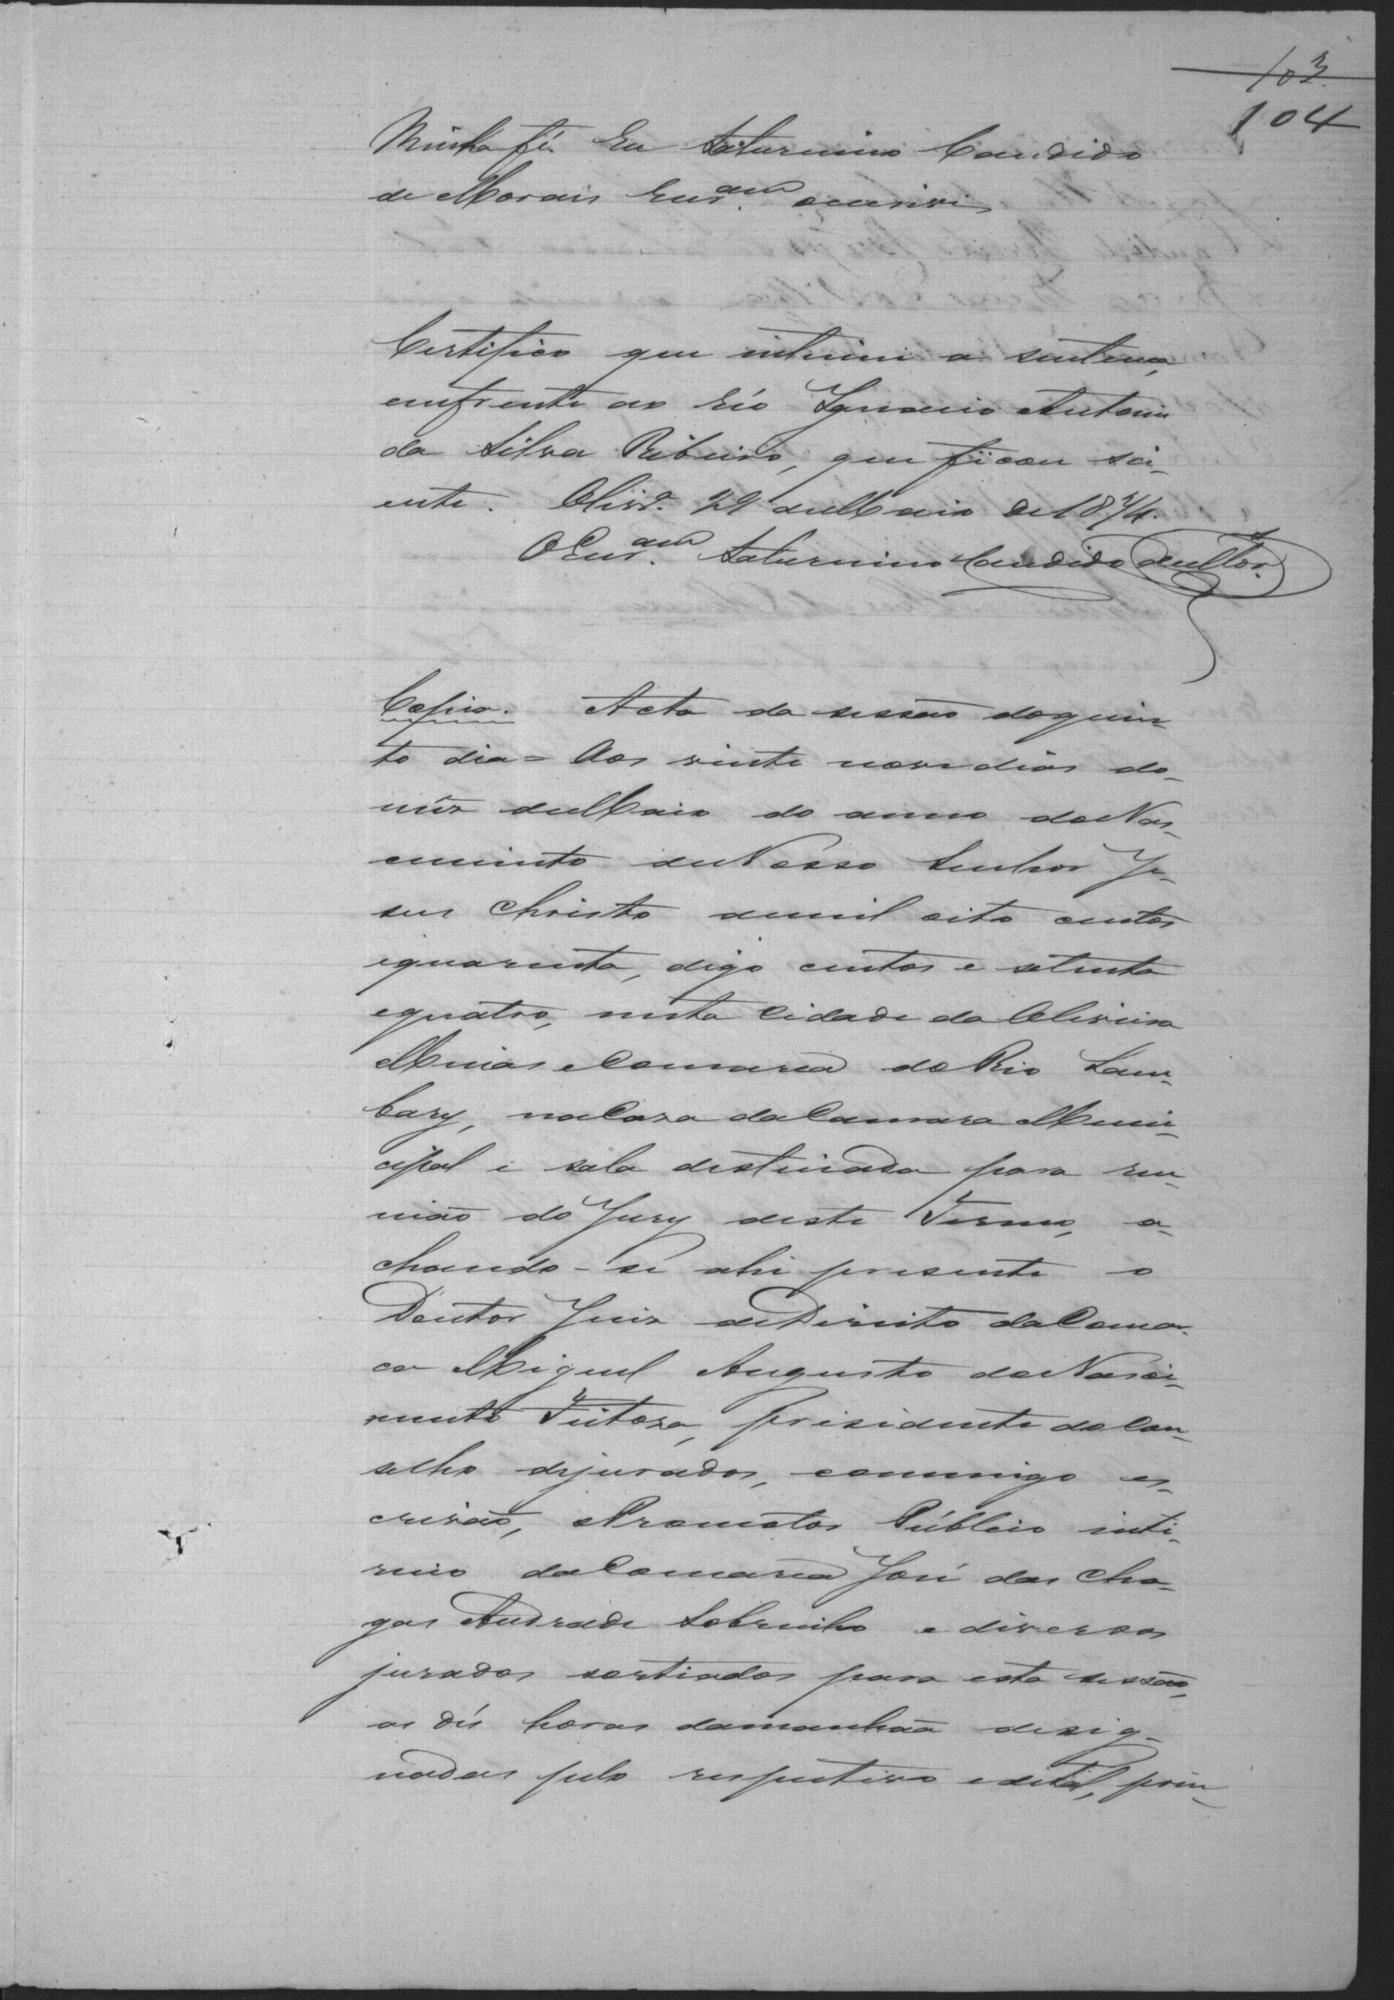 103
104
Minha fé. Eu Saturnino Candido
de Morais Escr.am escrivi
Certifico que intimei a sentença
emfrente ao réo Ignacio Antonio
da Silva Ribeiro, que ficou sci-
ente. Olivr.ª 29 de Maio de 1874.
O Escr.am Saturnino Candido de Mor.
Copia. Acta da sessão do quin-
to dia = Aos vinte nove dias do
mêz de Maio do anno do Nas-
cimento de Nosso Senhor Je-
sus Christo de mil oito centos
e quarenta, digo centos e setenta
e quatro, nesta Cidade da Oliveira
Minas e Comarca do Rio Lam-
bary, na Casa da Camara Muni-
cipal e sala destinada para reu-
nião do Jury deste Termo, a-
chando-se ahi presente o
Doutor Juiz de Direito da Comar-
ca Miguel Augusto do Nasci-
mento Feitosa, presidente do Con-
selho de jurados, commigo es-
crivão, o Promotor Público inte-
rino da Comarca José das Cha-
gas Andrade Sobrinho e diversos
jurados sorteados para esta sessão,
as dés horas da manhãa desig-
nadas pelo respectivo edital, prin-